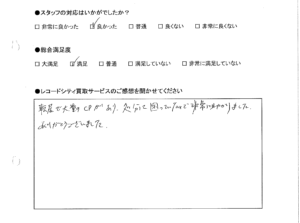 ●スタッフの対応はいかがでしたか?
□ 非常に良かった ☑ 良かった □ 普通 □ 良くない □ 非常に良くない
●総合満足度
□ 大満足 ☑ 満足 □ 普通 □ 満足していない □ 非常に満足していない
●レコードシティ買取サービスのご感想を聞かせてください
大量にあり、処分に困っていたので非常に助かりました。
ありがとうございました。